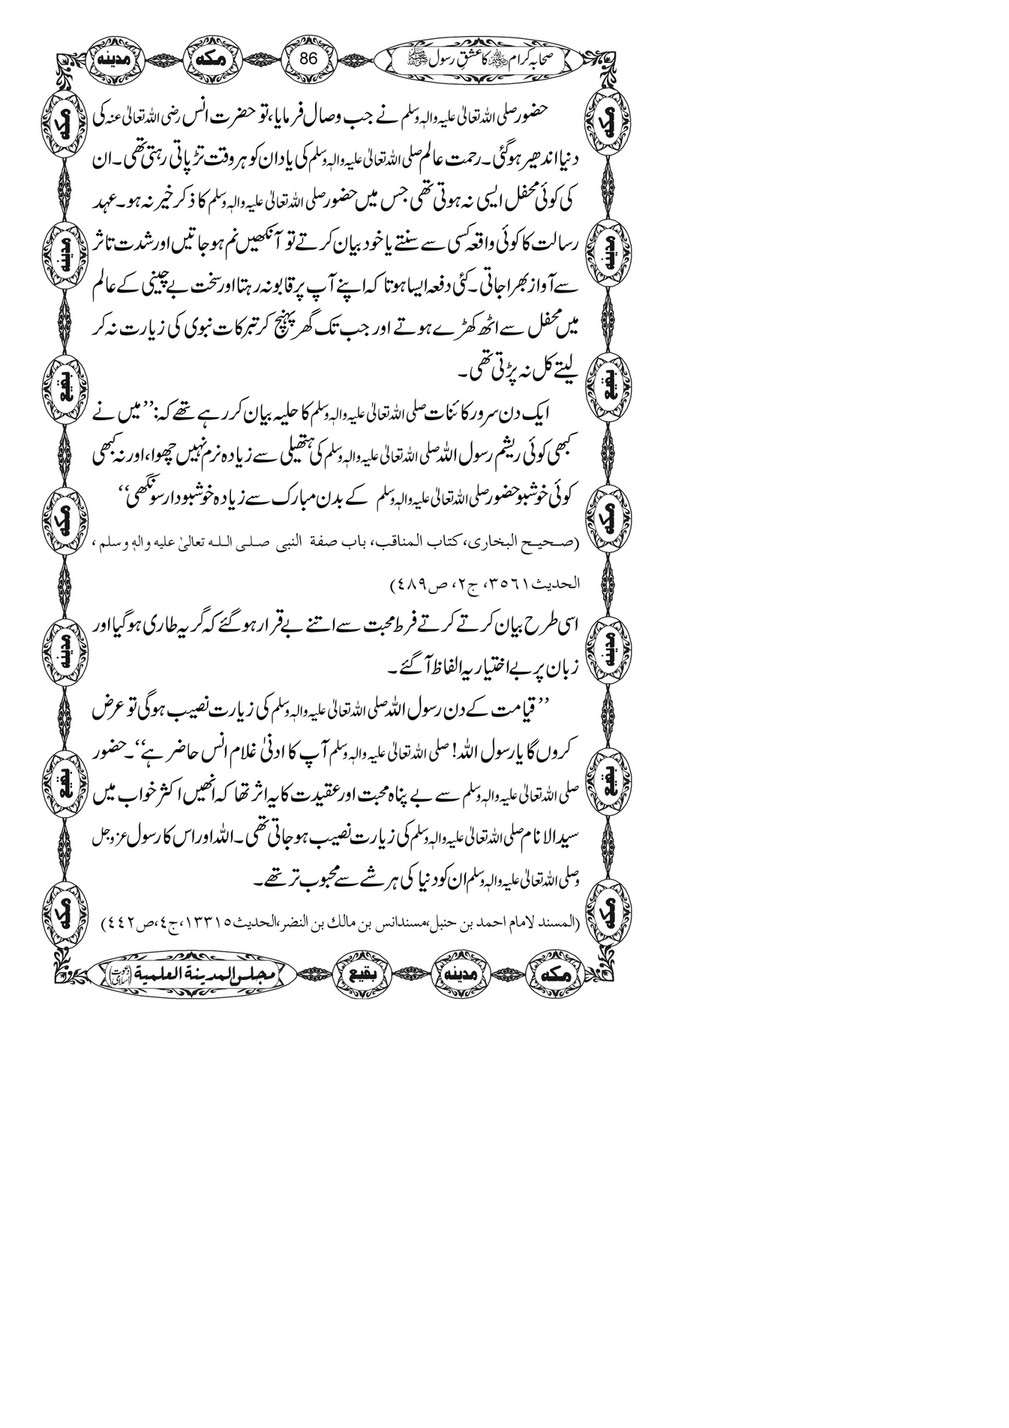 صحابہ کرام کا عشق رسول ﷺ
86
مکہ
مدینہ
حضور صلی اللہ تعالیٰ علیہ والہٖ وسلم نے جب وصال فرمایا، تو حضرت انس رضی اللہ تعالیٰ عنہ کی
دنیا اندھیر ہوگئی۔ رحمت عالم صلی اللہ تعالیٰ علیہ والہٖ وسلم کی یاد ان کو ہر وقت تڑپاتی رہتی تھی۔ ان
کی کوئی محفل ایسی نہ ہوتی تھی جس میں حضور صلی اللہ تعالیٰ علیہ والہٖ وسلم کا ذکر خیر نہ ہو۔ عہد
رسالت کا کوئی واقعہ کسی سے سنتے یا خود بیان کرتے تو آنکھیں نم ہو جاتیں اور شدت تاثر
سے آواز بھرا جاتی۔ کئی دفعہ ایسا ہوتا کہ اپنے آپ پر قابو نہ رہتا اور سخت بے چینی کے عالم
میں محفل سے اٹھ کھڑے ہوتے اور جب تک گھر پہنچ کر تبرکات نبوی کی زیارت نہ کر
لیتے کل نہ پڑتی تھی۔
ایک دن سرور کائنات صلی اللہ تعالیٰ علیہ والہٖ وسلم کا حلیہ بیان کر رہے تھے کہ: ’’میں نے
کبھی کوئی ریشم رسول اللہ صلی اللہ تعالیٰ علیہ والہٖ وسلم کی ہتھیلی سے زیادہ نرم نہیں چھوا، اور نہ کبھی
کوئی خوشبو حضور صلی اللہ تعالیٰ علیہ والہٖ وسلم کے بدن مبارک سے زیادہ خوشبودار سونگھی‘‘
(صحیح البخاری، کتاب المناقب، باب صفة النبی صلی اللہ تعالیٰ علیہ والہٖ وسلم،
الحدیث ٣٥٦١، ج٢، ص ٤٨٩)
اسی طرح بیان کرتے کرتے فرط محبت سے اتنے بے قرار ہوگئے کہ گریہ طاری ہوگیا اور
زبان پر بے اختیار یہ الفاظ آگئے۔
’’قیامت کے دن رسول اللہ صلی اللہ تعالیٰ علیہ والہٖ وسلم کی زیارت نصیب ہوگی تو عرض
کروں گا یا رسول اللہ! صلی اللہ تعالیٰ علیہ والہٖ وسلم آپ کا ادنیٰ غلام انس حاضر ہے‘‘۔ حضور
صلی اللہ تعالیٰ علیہ والہٖ وسلم سے بے پناہ محبت اور عقیدت کا یہ اثر تھا کہ انھیں اکثر خواب میں
سید الانام صلی اللہ تعالیٰ علیہ والہٖ وسلم کی زیارت نصیب ہو جاتی تھی۔ اللہ اور اس کا رسول عزوجل
وصلی اللہ تعالیٰ علیہ والہٖ وسلم ان کو دنیا کی ہر شے سے محبوب تر تھے۔
(المسند لامام احمد بن حنبل، مسند انس بن مالك بن النضر، الحدیث ١٣٣١٥، ج٤، ص ٤٤٢)
مکہ
مدینہ
بقیع
مجلس المدینة العلمیة
مکہ
مدینہ
بقیع
مکہ
مدینہ
بقیع
مکہ
مکہ
مدینہ
بقیع
مکہ
مدینہ
بقیع
مکہ